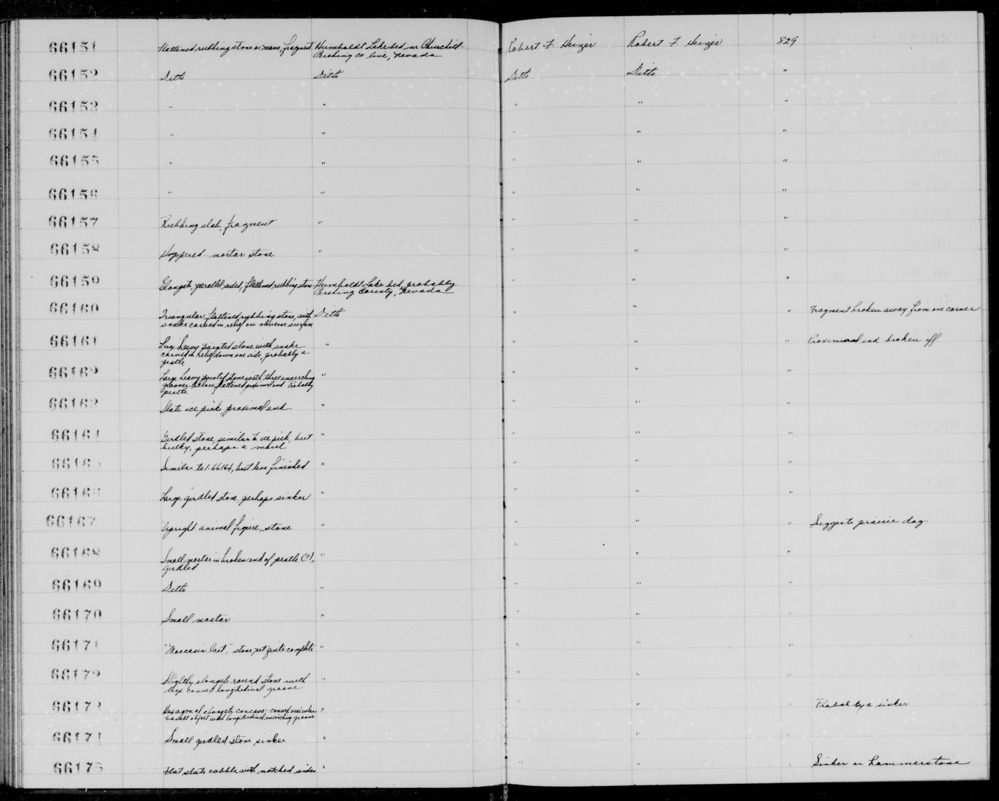 66151 Flattened rubbing stone or mano, fragment Humboldt Lake bed, nr Churchill- Robert F Heizer Robert F Heizer 829
Pershing Co line, Nevada
66152 Ditto Ditto Ditto Ditto "
66153 " " " " "
66154 " " " " "
66155 " " " " "
66156 " " " " "
66157 Rubbing slab, fragment " " " "
66158 Hoppered mortar stone " " " "
66159 Elongate, parallel sided, flattened rubbing stone Humboldt Lake bed, probably " " "
Pershing County, Nevada
66160 Triangular, flattened rubbing stone, with Ditto " " " Fragment broken away from one corner
snake carved in relief on obverse surface
66161 Large heavy pointed stone with snake " " " " Proximal end broken off
carved in relief down one side, probably a
pestle
66162 Large heavy pointed stone with three encircling " " " "
grooves, flattened proximal end Probably
pestle
66163 Slate ice pick, proximal end " " " "
66164 Girdled stone, similar to ice pick, but " " " "
bulky, perhaps a maul
66165 Similar to 1-66164, but less finished " " " "
66166 Large girdled stone, perhaps sinker " " " "
66167 Upright animal figure, stone " " " " Suggests prairie dog
66168 Small mortar in broken end of pestle (?), " " " "
girdled
66169 Ditto " " " "
66170 Small mortar " " " "
66171 "Moccasin last," stone, not quite complete " " " "
66172 Slightly elongate round stone with " " " "
longitudinal groove
66173 elongate concavo-convex " " " " Probably a sinker
small object with longitudinal encircling groove
66174 Small girdled stone, sinker " " " "
66175 Flat slate cobble with notched sides " " " " Sinker or hammerstone